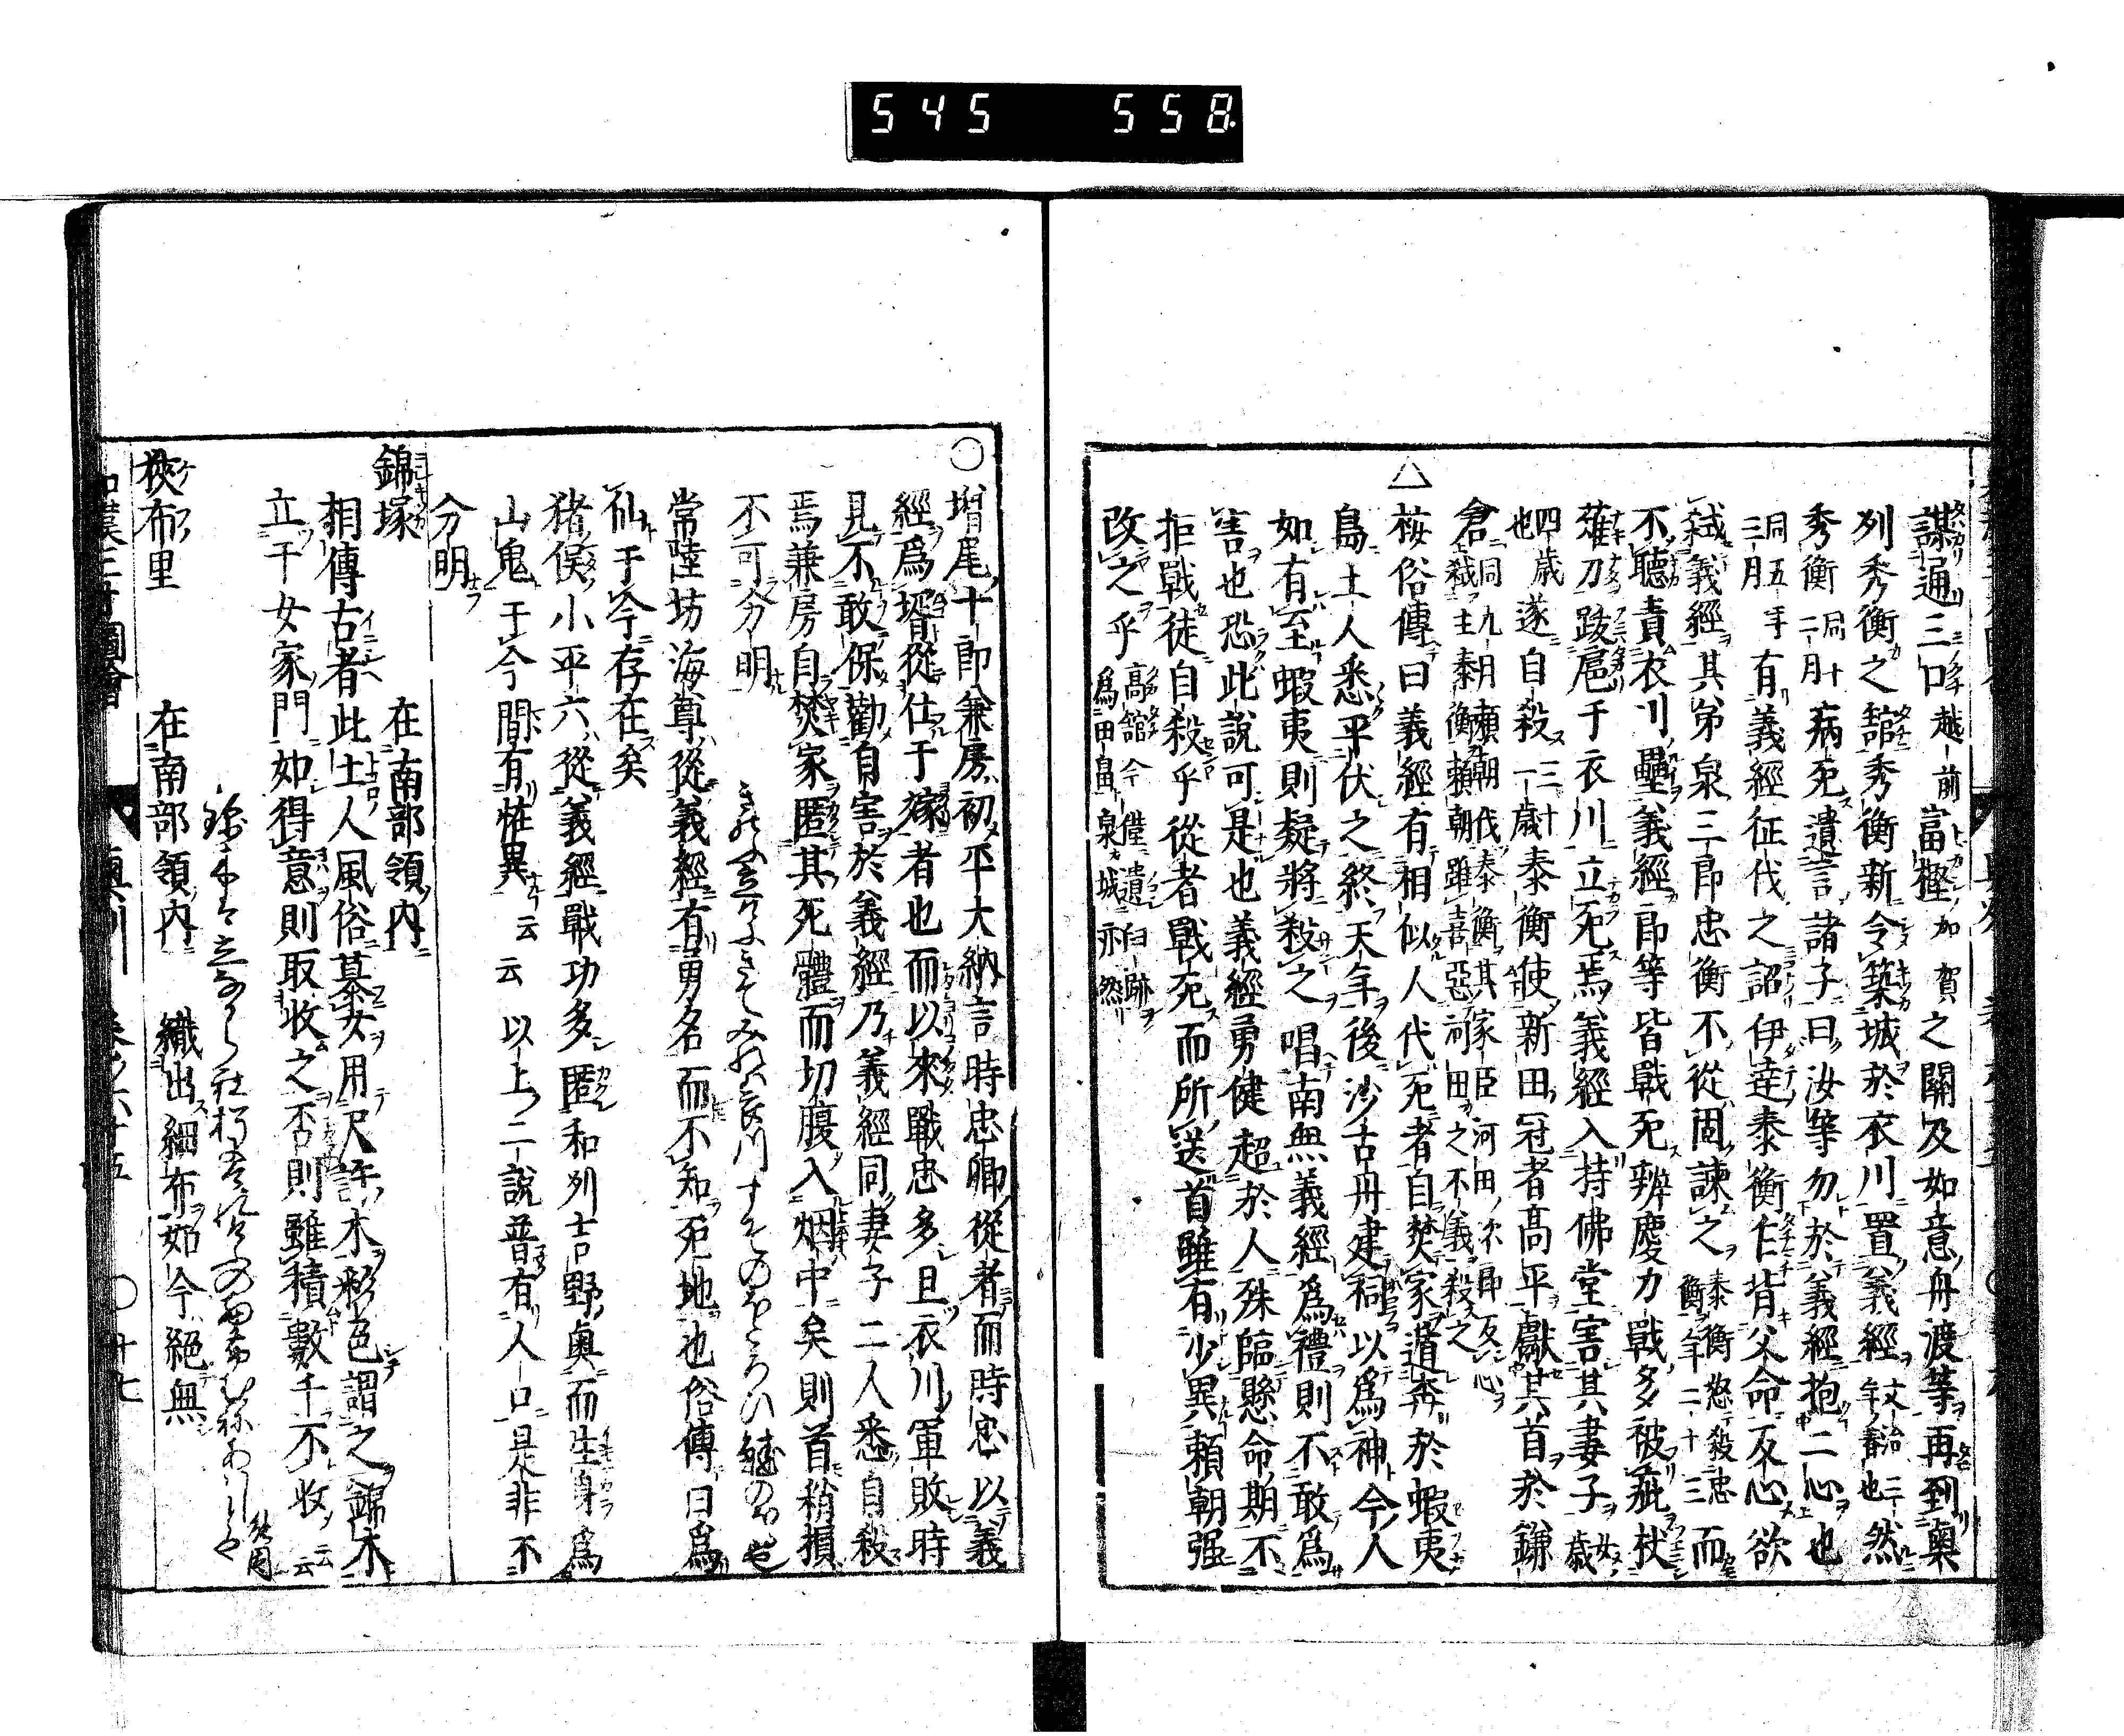 545 558
謀通三口越前富樫加賀之關及如意舟渡等再到奧
列秀衡之舘秀衡新令築城於衣川置義經文治三年春也然
秀衡同十二月病死遺言諸子曰汝等勿於義經抱二心也
同五年三月有義經征伐之詔伊達泰衡乍背父命反心欲
弑義經其弟泉三郎忠衡不從固諫之泰衡怒殺忠衡年二十三而
不聽責衣川壘義經郎等皆戰死辨慶力戰多被疵杖
薙刀跋扈于衣川立死焉義經入持佛堂害其妻子女歳
四歳也遂自殺三十一歳泰衡使新田冠者高平獻其首於鎌
倉同九月賴朝伐泰衡其家臣河田次郎反心弑主泰衡賴朝雖喜惡河田之不義殺之
△按俗傳曰義經有相似人代死者自焚家遁奔於蝦夷
島土人悉平伏之終天年後沙古丹建祠以爲神今人
如有至蝦夷則擬將殺之唱南無義經爲禮則不敢爲
害也恐此說可是也義經勇健超於人殊臨懸命期不
拒戰徒自殺乎從者戰死而所送首雖有少異賴朝强
改之乎高舘今僅遺臼跡爲田畠泉城亦然
○増尾十郎兼房初平大納言時忠卿從者而時忠以義
經爲壻從仕于嫁者也而以來職忠多且衣川軍敗時
見不敢保勸自害於義經乃義經同妻子二人悉自殺
焉兼房自焚家匿其死體而切腹入烟中矣則首稍損
不可分明
常陸坊海尊從義經有勇名而不知死地也俗傳曰爲
仙于今存在矣
猪俣小平六從義經戰功多匿和列吉野奧而生身爲
山鬼于今間有怪異云云以上二說普有人口是非不
分明
錦塚 在南部領内
相傳古者此土人風俗慕女用尺許木彩色謂之錦木
立于女家門如得意則取收之否則雖積數千不收云云
狹布里 在南部領内 織出細布如今絕無
和漢三才圖會 奧州 卷之六十五 ○廿七